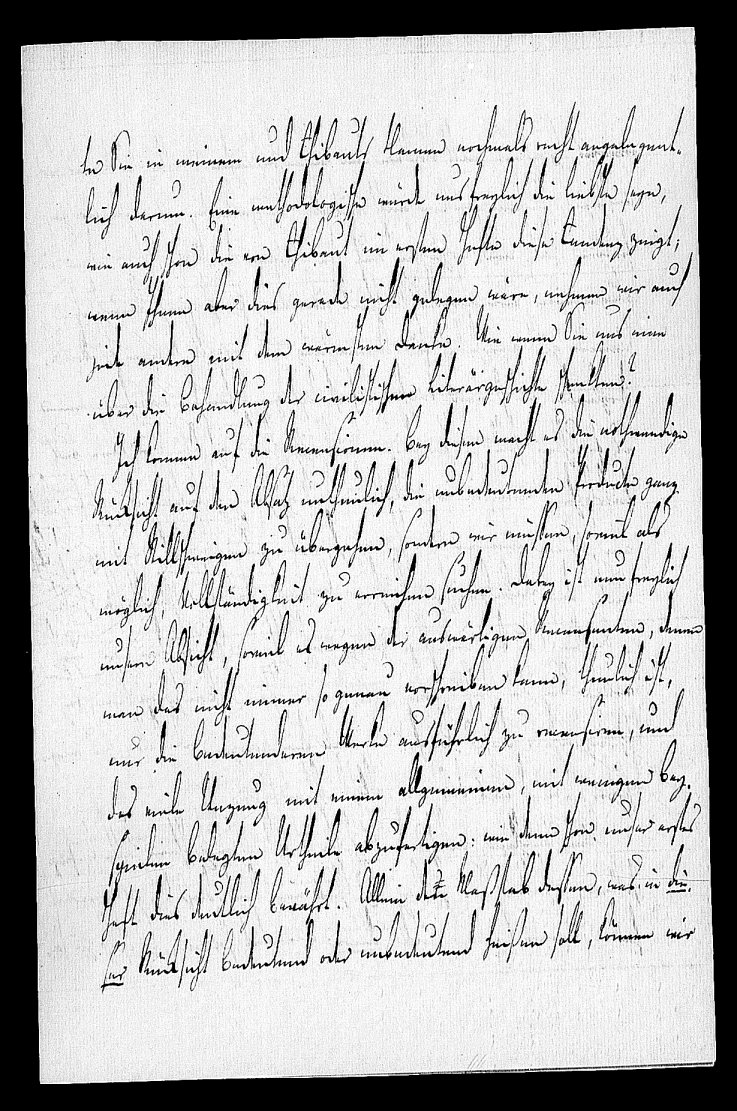 te Sie in meinem und Thibauts Namen nochmals recht angelegent-
lich darum. Eine methodologische würde uns freylich die liebste seyn,
wie auch schon die von Thibaut im ersten Hefte diese Tendenz zeigt;
wenn Ihnen aber dies gerade nicht gelegen wäre, nehmen wir auch
jede andere mit dem wärmsten Danke. Wie wenn Sie uns eine
über die Behandlung der civilistischen Literärgeschichte schenkten?
Ich komme auf die Recensionen. Bey diesen macht es die nothwendige
Rücksicht auf den Absatz unthunlich, die unbedeutenden Producte ganz
mit Stillschweigen zu übergehen, sondern wir müssen, soviel als
möglich, Vollständigkeit zu erreichen suchen. Dabey ist nun freylich
unsere Absicht, soviel es wegen der auswärtigen Recensenten, denen
man das nicht immer so genau vorschreiben kann, thunlich ist,
nur die bedeutenderen Werke ausführlich zu recensiren, und
das viele Unzeug mit einem allgemeinen, mit wenigen Bey-
spielen belegten Urtheile abzufertigen: wie denn schon unser erstes
Heft dies deutlich bewährt. Allein der Maßstab dessen, was in die-
ser Rücksicht bedeutend oder unbedeutend heißen soll, können wir